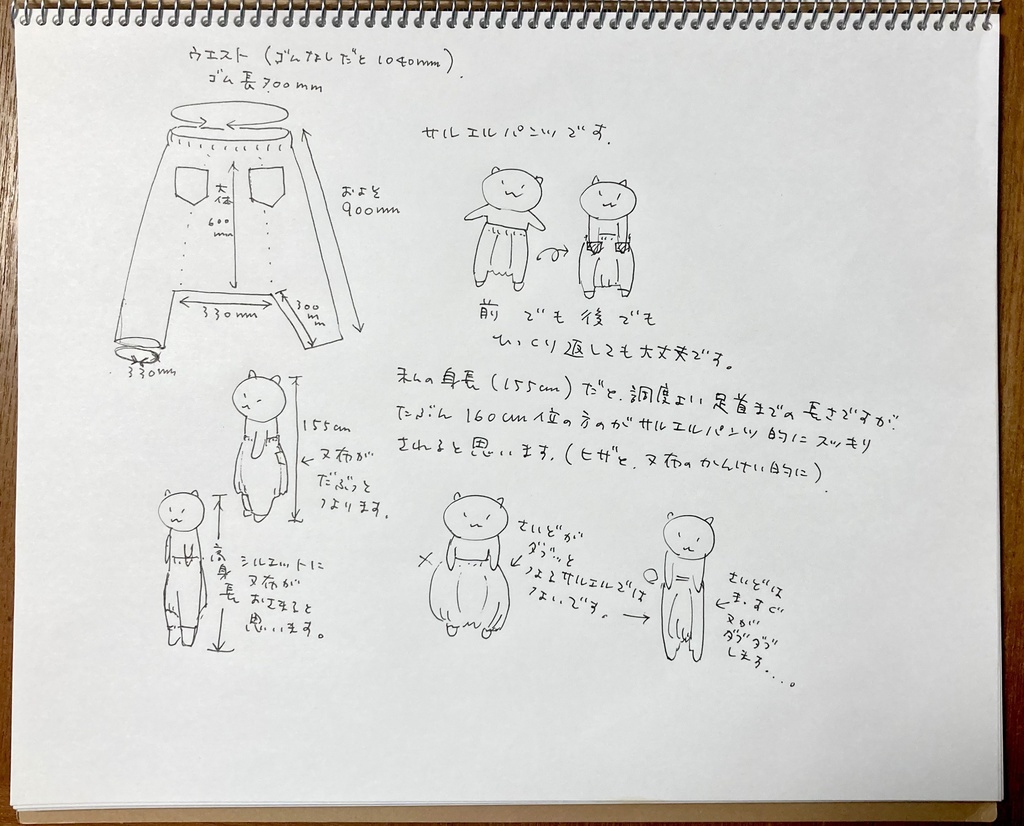 ウエスト (ゴムなしだと 1040mm).
ゴム長 700mm
大体
600
mm
およそ
900mm
330mm
300
mm
330mm
サルエルパンツです.
前 でも 後 でも
ひっくり返しても大丈夫です。
私の身長 (155cm) だと、調度よい足首までの長さですが.
たぶん 160cm位の方のがサルエルパンツ的にスッキリ
されると思います. (ヒザと、又布のかんけい的に).
155cm
又布が
だぶっと
なります.
高身長
シルエットに
又布が
おさまると
思います。
×
さいどが
ダブッと
なるサルエルでは
ないです。
○
さいどは
まっすぐ
又が
ダブダブ
しえる....。